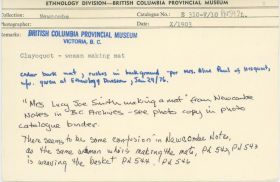 ETHNOLOGY DIVISION—BRITISH COLUMBIA PROVINCIAL MUSEUM
Collection: Newcombe
Catalogue No.: E 310-F/10
Photographer:
Date: X/1903
BRITISH COLUMBIA PROVINCIAL MUSEUM
VICTORIA, B. C.
Clayoquot - woman making mat
cedar bark mat, rushes in background - per Mrs. Alice Paul of Hesquiat,
info. given at Ethnology Division, Jan 29/76.
"Mrs Lucy Joe Smith making a mat" from Newcombe
Notes in BC Archives - see photo copy in photo
catalogue binder.
There seems to be some confusion in Newcombe Notes,
as the same woman who is making the mats, PN 542, PN 543
is weaving the basket PN 544, PN 546